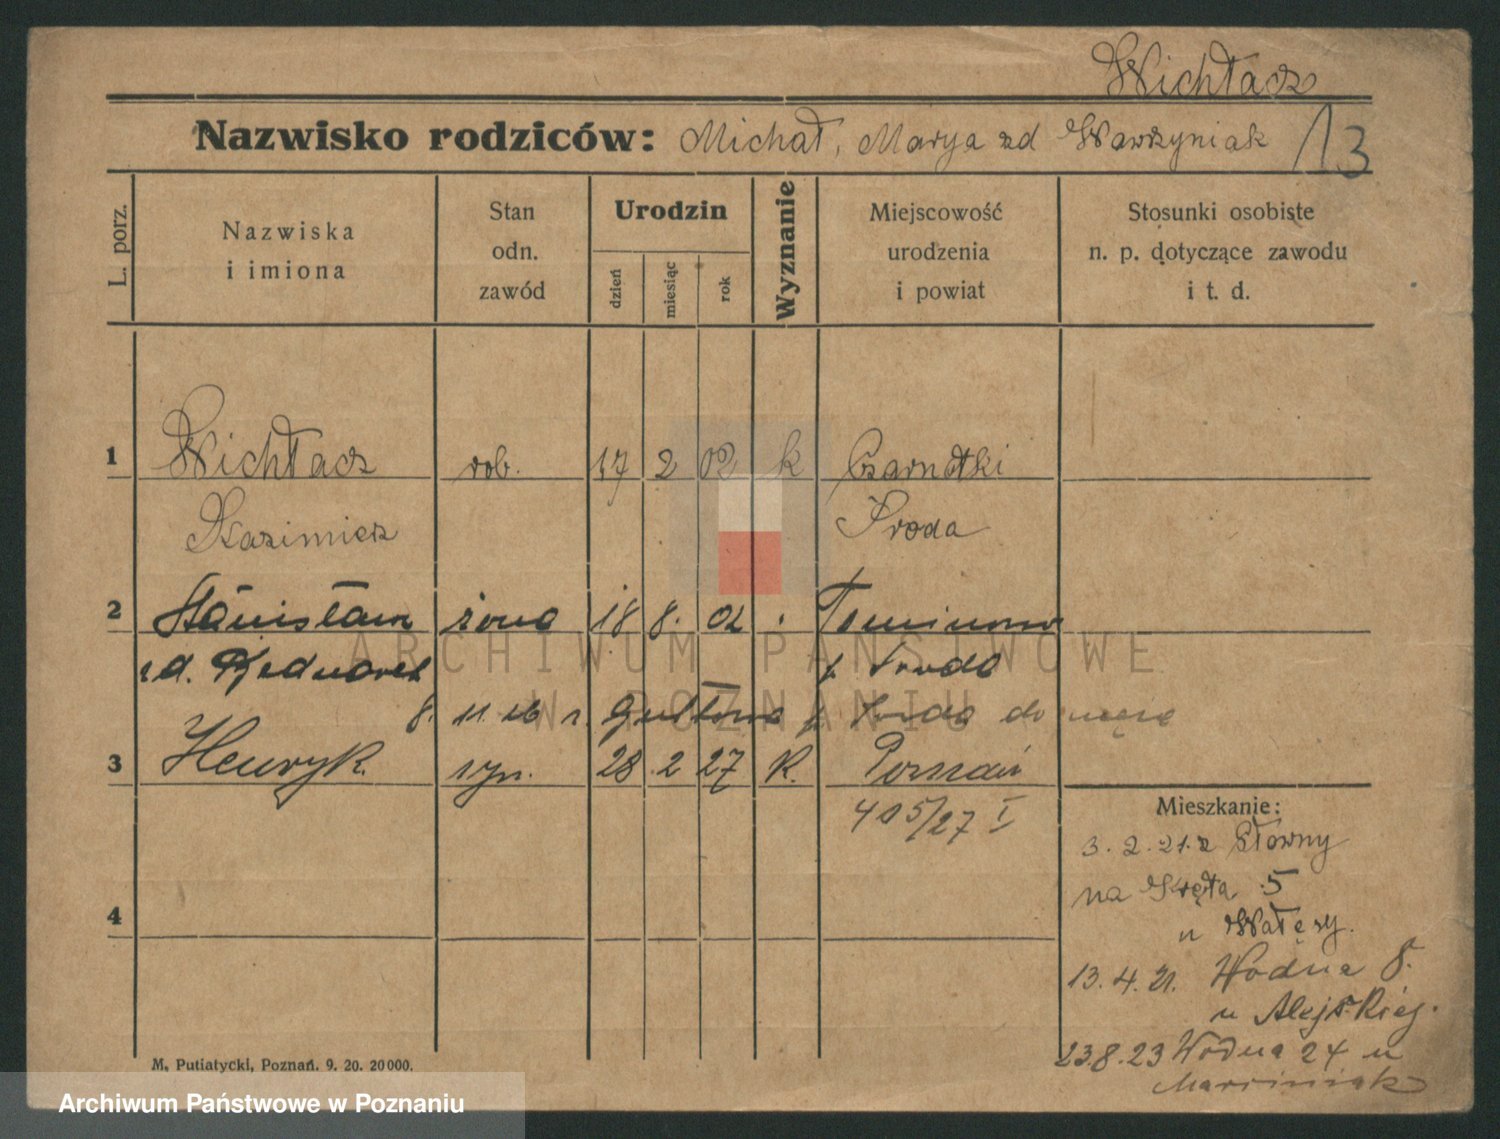 Wichłacz
Nazwisko rodziców: Michał, Marya zd Wawrzyniak 13
L. porz.
Nazwiska
i imiona
Stan
odn.
zawód
Urodzin
dzień
miesiąc
rok
Wyznanie
Miejscowość
urodzenia
i powiat
Stosunki osobiste
n. p. dotyczące zawodu
i t. d.
1 Wichłacz rob. 17 2 02 k Czarnotki
Kazimierz Środa
2 Stanisława żona 18 8. 02 Tominowo
zd. Bednarek p. Środa
8. 11. 26 r. Gułtowa p. Środa do męża
3 Henryk syn. 28 2 27 K. Poznań
405/27 I
Mieszkanie:
3.2.21. z Główny
na Kręta 5
u Wałęzy.
13.4.21. Wodna 8.
u Alejskiej.
23.8.23 Wodna 24 u
Marciniak
4
M. Putiatycki, Poznań. 9. 20. 20000.
ARCHIWUM PAŃSTWOWE
W POZNANIU
Archiwum Państwowe w Poznaniu